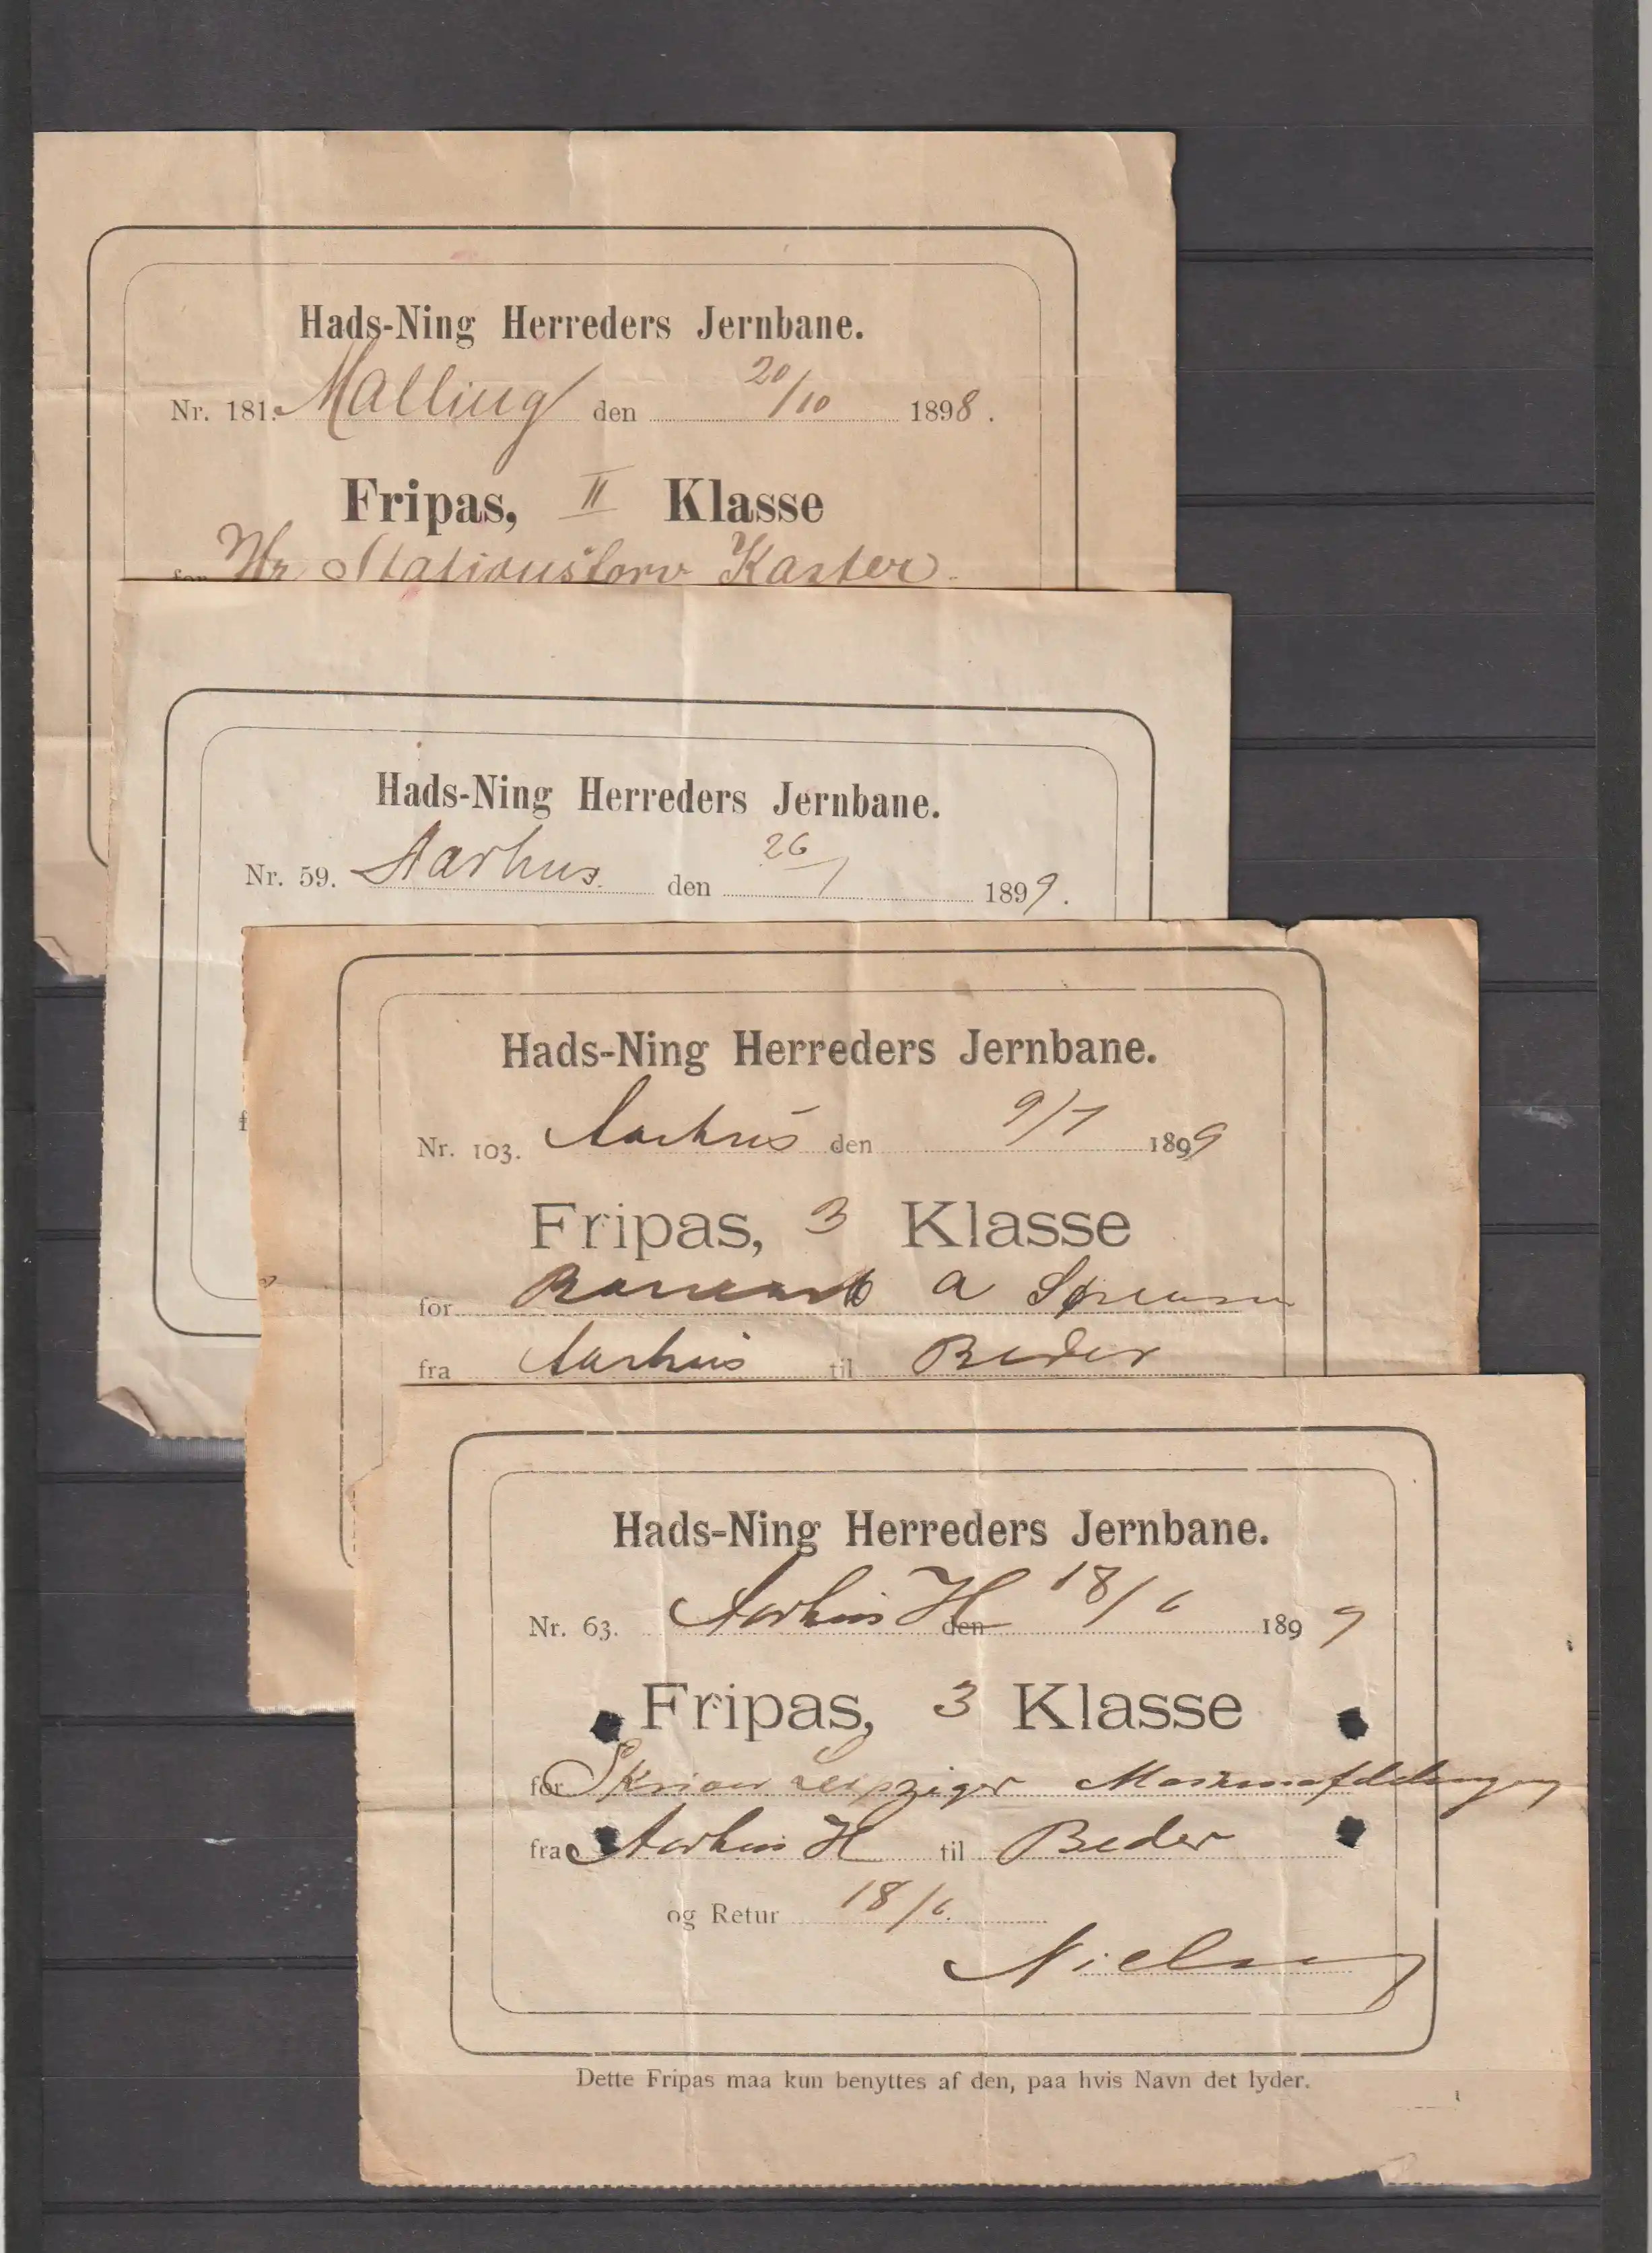 Hads-Ning Herreders Jernbane.
Nr. 181. Malling den 20/10 1898.
Fripas, II Klasse
for Hr Stationsforv Kaster
Hads-Ning Herreders Jernbane.
Nr. 59. Aarhus den 26/1 1899.
Hads-Ning Herreders Jernbane.
Nr. 103. Aarhus den 9/7 1899
Fripas, 3 Klasse
for A Sørensen
fra Aarhus til Beder
Hads-Ning Herreders Jernbane.
Nr. 63. Aarhus H den 18/6 1899
Fripas, 3 Klasse
for Skriver Leipziger Maskinafdelingen
fra Aarhus H til Beder
og Retur 18/6.
Nielsen
Dette Fripas maa kun benyttes af den, paa hvis Navn det lyder.